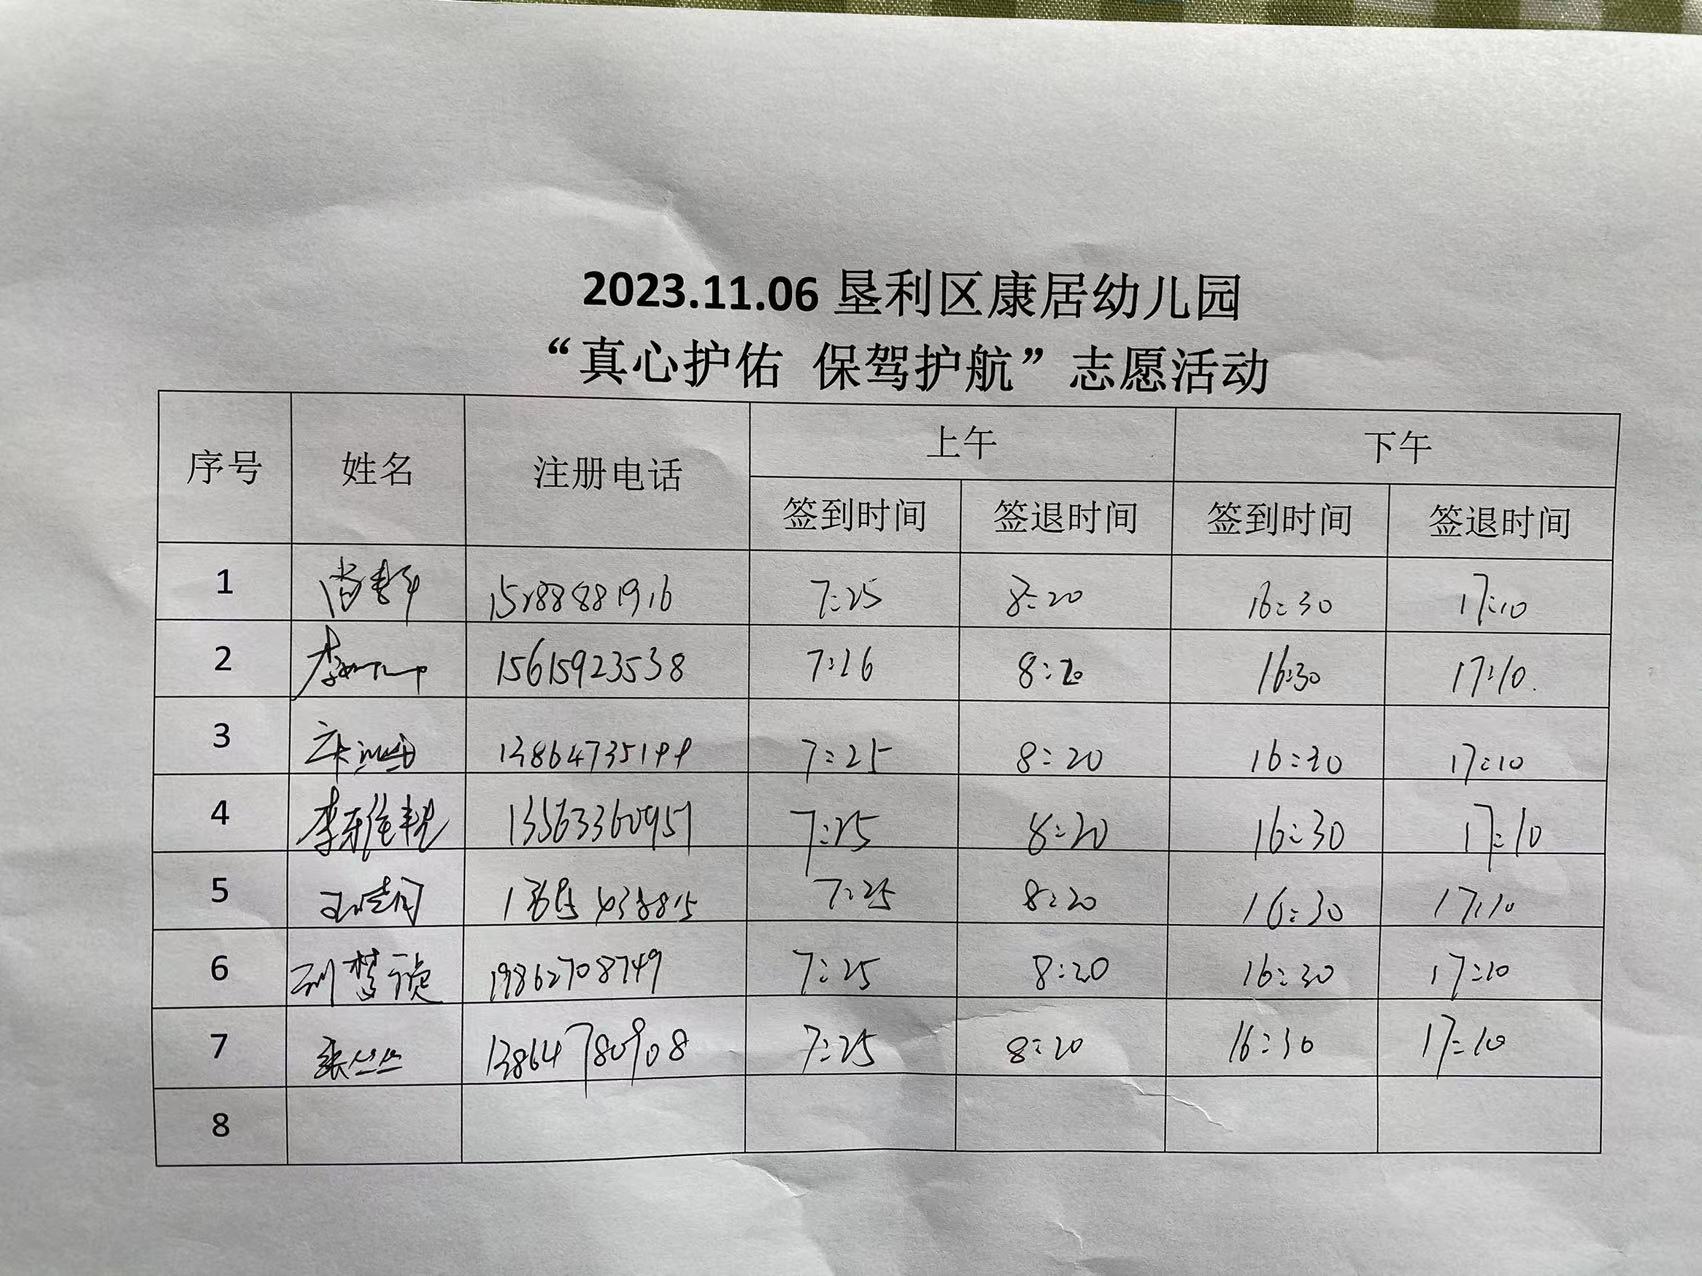 2023.11.06 垦利区康居幼儿园
“真心护佑 保驾护航”志愿活动
序号 姓名 注册电话 上午 下午
签到时间 签退时间 签到时间 签退时间
1 15288881916 7:25 8:20 16:30 17:10
2 15615923538 7:26 8:20 16:30 17:10
3 13864735199 7:25 8:20 16:30 17:10
4 李雅艳 13563360957 7:25 8:20 16:30 17:10
5 7:25 8:20 16:30 17:10
6 刘梦祯 19862708749 7:25 8:20 16:30 17:10
7 张丝丝 13864780908 7:25 8:20 16:30 17:10
8